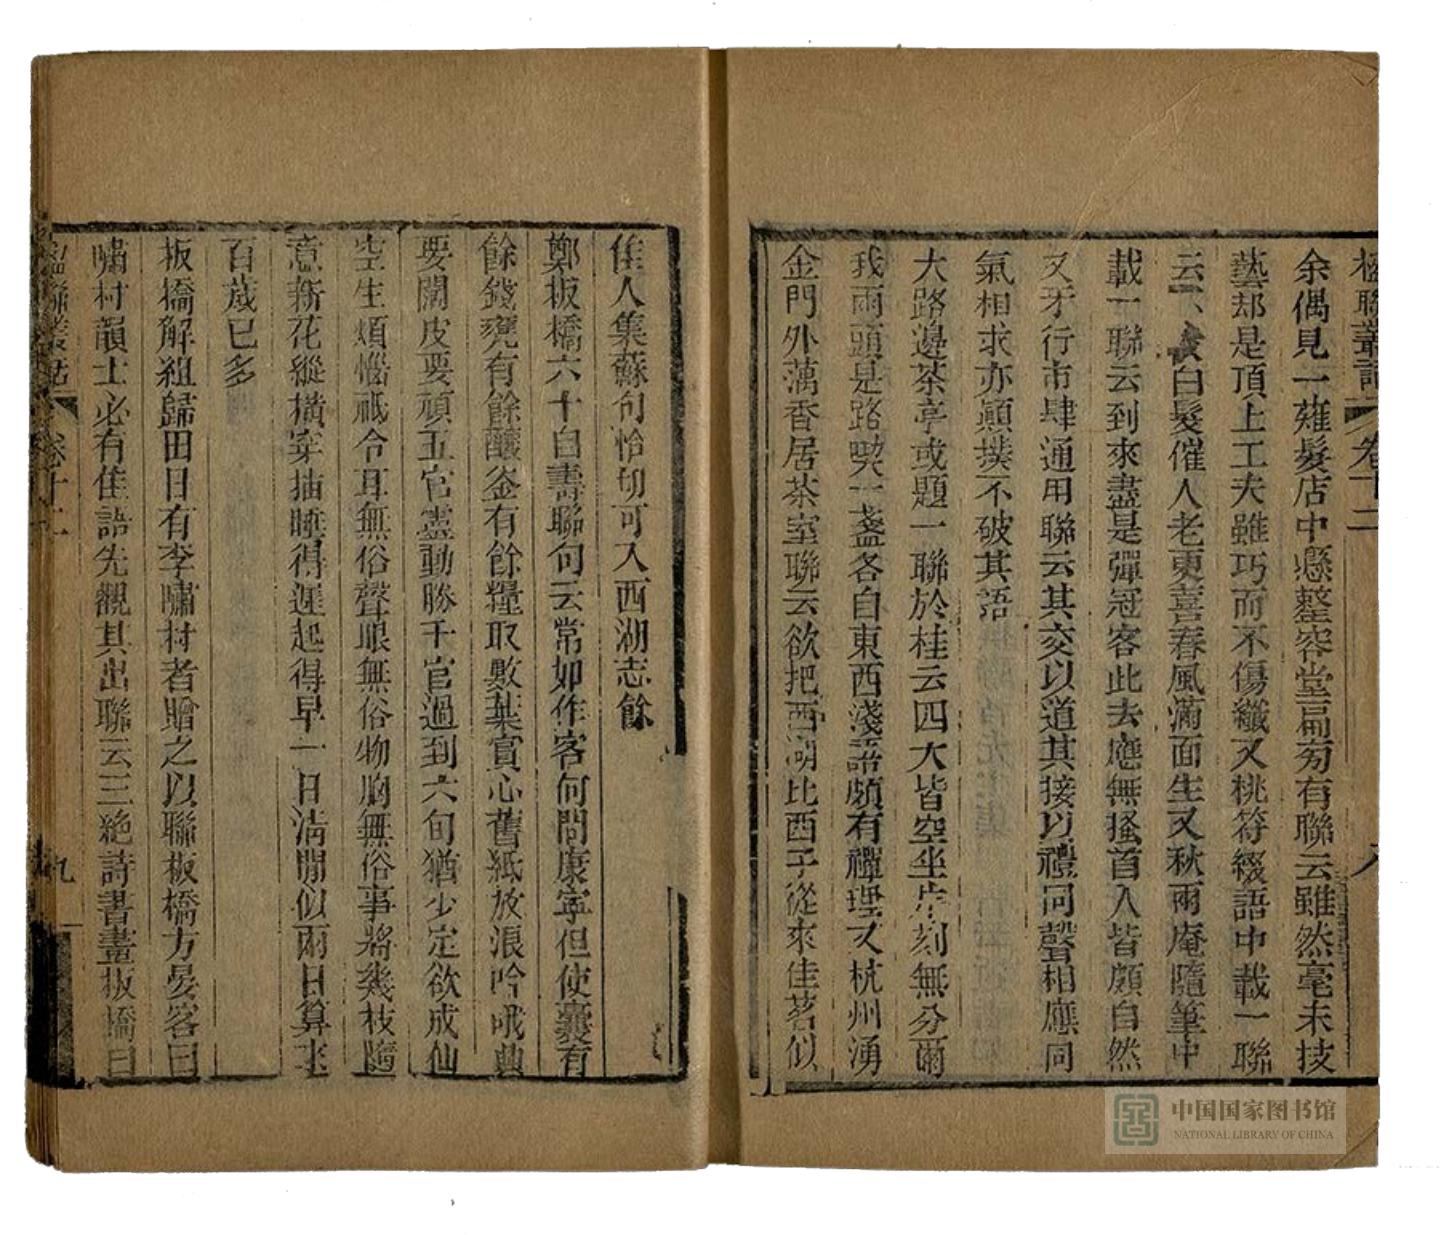 楹聯叢話 卷十二 八
余偶見一薙髮店中懸整容堂扁旁有聯云雖然毫末技
藝却是頂上工夫雖巧而不傷纖又桃符綴語中載一聯
云不教白髮催人老更喜春風滿面生又秋雨庵隨筆中
載一聯云到來盡是彈冠客此去應無搔首人皆頗自然
又牙行市肆通用聯云其交以道其接以禮同聲相應同
氣相求亦顛撲不破其語
大路邊茶亭或題一聯於柱云四大皆空坐片刻無分爾
我兩頭是路喫一盞各自東西淺語頗有禪理又杭州湧
金門外藕香居茶室聯云欲把西湖比西子從來佳茗似
佳人集蘇句恰切可入西湖志餘
鄭板橋六十自壽聯句云常如作客何問康寧但使囊有
餘錢甕有餘釀釜有餘糧取數葉賞心舊紙放浪吟哦興
要闊皮要頑五官靈動勝千官過到六旬猶少定欲成仙
空生煩惱祇令耳無俗聲眼無俗物胸無俗事將幾枝隨
意新花縱橫穿插睡得遲起得早一日清閒似兩日算來
百歲已多
板橋解組歸田日有李嘯村者贈之以聯板橋方宴客曰
嘯村韻士必有佳語先觀其出聯云三絕詩書畫板橋曰
楹聯叢話 卷十二 九
中国国家图书馆
NATIONAL LIBRARY OF CHINA